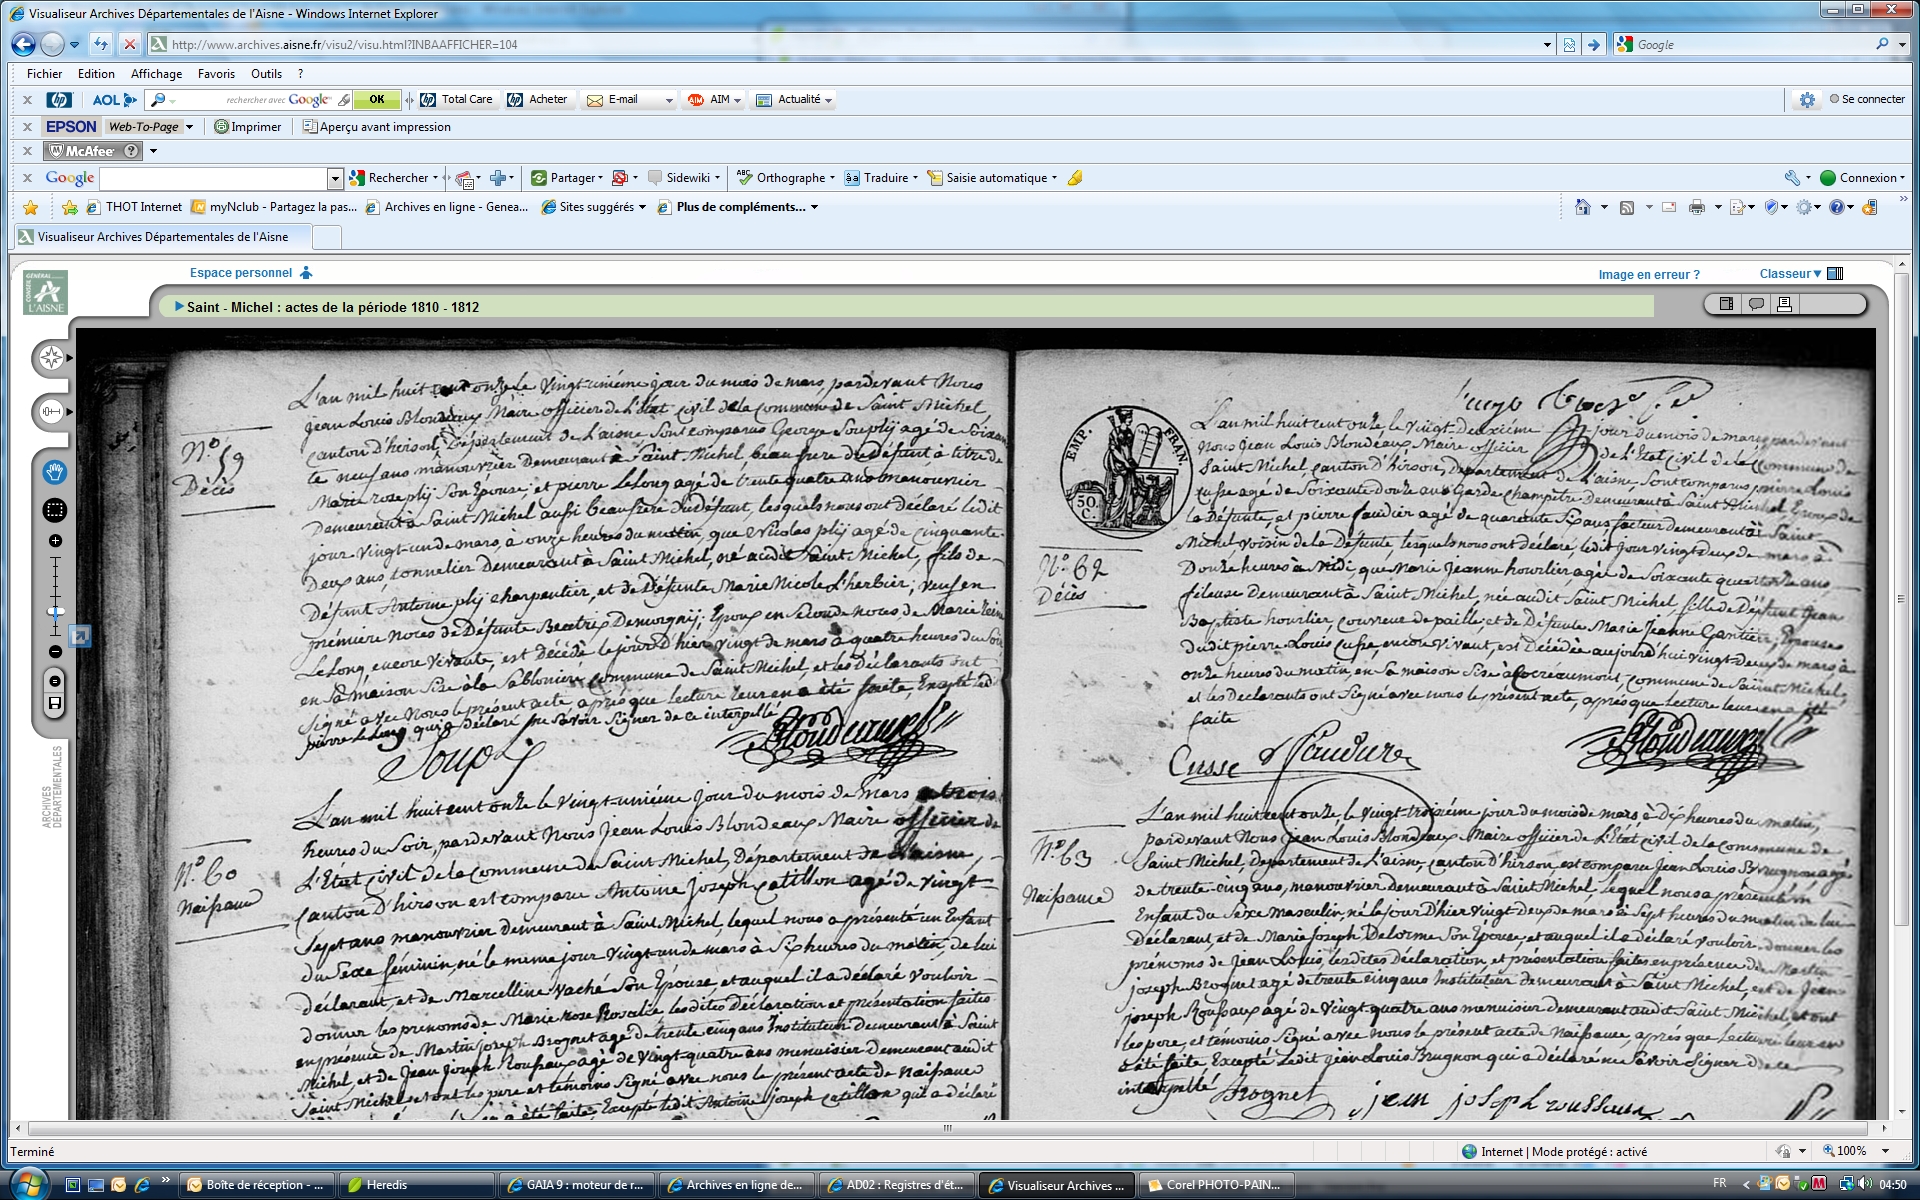 Visualiseur Archives Départementales de l'Aisne - Windows Internet Explorer
http://www.archives.aisne.fr/visu2/visu.html?INBAAFFICHER=104
Google
Fichier Edition Affichage Favoris Outils ?
AOL rechercher avec Google OK Total Care Acheter E-mail AIM Actualité Se connecter
EPSON Web-To-Page Imprimer Aperçu avant impression
McAfee
Google Rechercher Partager Sidewiki Orthographe Traduire Saisie automatique Connexion
THOT Internet myNclub - Partagez la pas... Archives en ligne - Genea... Sites suggérés Plus de compléments...
Visualiseur Archives Départementales de l'Aisne
CONSEIL GÉNÉRAL L'AISNE
Espace personnel Image en erreur ? Classeur
Saint - Michel : actes de la période 1810 - 1812
ARCHIVES DÉPARTEMENTALES
N.º 59
Décès
L'an mil huit cent onze le Vingt-unième jour du mois de mars, pardevant Nous
jean Louis Blondeaux Maire officier de L'État Civil de la Commune de Saint Michel,
canton d'hirson, Département de L'aisne Sont comparus George Souplij agé de Soixan
te neuf ans manouvrier Demeurant à Saint Michel beau frere du Défunt à titre de
Marie rose plij Son Epouse; et pierre Le Long agé de trente quatre ans manouvrier
Demeurant à Saint Michel aussi beau frere du Défunt, lesquels nous ont déclaré ledit
jour vingt-un de mars, à onze heures du matin, que Nicolas plij agé de cinquante-
Deux ans, tonnelier Demeurant à Saint Michel, né audit Saint Michel, fils de-
Défunt Antoine plij charpentier, et de Défunte Marie Nicole L'herbier; veuf en
première noces de Défunte Beatrix Demorgnij; Epoux en seconde noces, de Marie
Le Long, encore Vivante, est Décédé le jour D'hier Vingt de mars à quatre heures du Soir
en Sa maison Sise à la Sablonière commune de Saint Michel, et les Déclarants ont
Signé avec Nous le présent acte, après que Lecture leur en a été faite, Excepté ledit
pierre Le Long qui a déclaré ne savoir signer de ce interpellé
Soupli Blondeaux
N.º 60
Naissance
L'an mil huit cent onze le Vingt-unième jour du mois de mars à trois
heures du Soir, pardevant Nous Jean Louis Blondeaux Maire officier de
L'État Civil de la Commune de Saint Michel, Département de L'aisne,
Canton D'hirson est comparu Antoine Joseph Catillon agé de vingt
Sept ans manouvrier demeurant à Saint Michel, lequel nous a présenté un Enfant
du Sexe féminin, né le meme jour Vingt-un de mars à Six heures du matin, de lui
déclarant, et de Marcelline Vaché Son Epouse, et auquel il a déclaré Vouloir
donner les prenoms de Marie rose Rosalie lesdites Déclaration et présentation faites
en présence de Martin joseph Brognet agé de trente cinq ans Instituteur Demeurant à Saint
Michel, et de Jean Joseph Roussaux agé de Vingt-quatre ans menuisier Demeurant audit
Saint Michel et ont les pere et témoins Signé avec nous le présent acte de Naissance
a été faite Excepté ledit Antoine joseph Catillon qui a déclaré
EMP. FRAN.
50 C.
N.º 62
Décès
L'an mil huit cent onze le Vingt-deuxième jour du mois de mars pardevant
Nous Jean Louis Blondeaux Maire officier de l'État Civil de la Commune de
Saint Michel canton D'hirson, Département de L'aisne, Sont comparus pierre Louis
Cusse agé de Soixante douze ans Garde champêtre Demeurant à Saint Michel Epoux de
la Défunte, et pierre faudier agé de quarante Six ans facteur demeurant à Saint
Michel voisin de la Défunte, lesquels nous ont déclaré, ledit jour vingt deux de mars à
Douze heures à Midi, que Marie Jeanne hourlier agée de Soixante quatorze ans,
fileuse Demeurant à Saint Michel, née audit Saint Michel, fille de Défunt Jean
Baptiste hourlier, couvreur de paille, et de Défunte Marie Jeanne Gantier; Epouse
dudit pierre Louis Cusse encore vivant, est Décédée aujourd'hui vingt-deux de mars à
onze heures du matin, en Sa maison Sise à Cocréaumont, commune de Saint Michel,
et les Déclarants ont Signé avec nous le présent acte, après que Lecture leur en a été
faite
Cusse Blondeaux
N.º 63
Naissance
L'an mil huit cent onze, le Vingt-troisième jour du mois de mars à Dix heures du matin,
pardevant Nous Jean Louis Blondeaux Maire officier de L'État Civil de la Commune de
Saint Michel, département de L'aisne, canton d'hirson, est comparu Jean Louis Brugnon agé
de trente-cinq ans, manouvrier Demeurant à Saint Michel, lequel nous a présenté un
Enfant du Sexe Masculin, né le jour D'hier Vingt Deux de mars à Sept heures du matin de lui
Déclarant, et de Marie Joseph Delorme Son Epouse, et auquel il a déclaré vouloir donner les
prénoms de Jean Louis, lesdites Déclaration et présentation faites en présence de Martin
joseph Brognet agé de trente cinq ans Instituteur demeurant à Saint Michel, et de Jean
joseph Roussaux agé de Vingt-quatre ans menuisier Demeurant audit Saint Michel, et ont
les pere, et témoins Signé avec nous le présent acte de Naissance, après que Lecture leur en
a été faite, Excepté Ledit Jean Louis Brugnon qui a déclaré ne Savoir Signer de ce
interpellé
Brognet jean joseph roussaux
Terminé Internet | Mode protégé : activé 100%
Boîte de réception - ... Heredis GAIA 9 : moteur de r... Archives en ligne de... AD02 : Registres d'ét... Visualiseur Archives ... Corel PHOTO-PAIN... FR 04:50